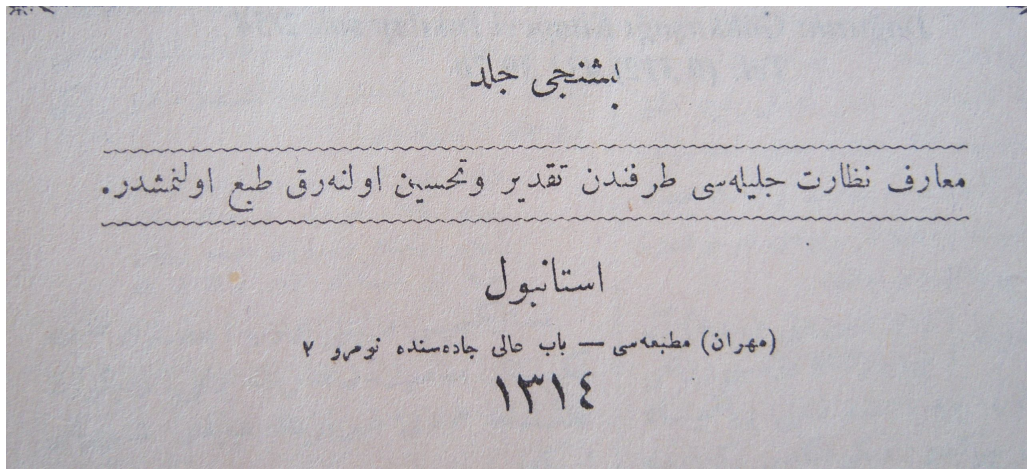 بشنجی جلد
معارف نظارت جلیله‌سی طرفندن تقدیر وتحسین اولنه‌رق طبع اولنمشدر.
استانبول
(مهران) مطبعه‌سی — باب عالی جاده‌سنده نومرو ٧
١٣١٤